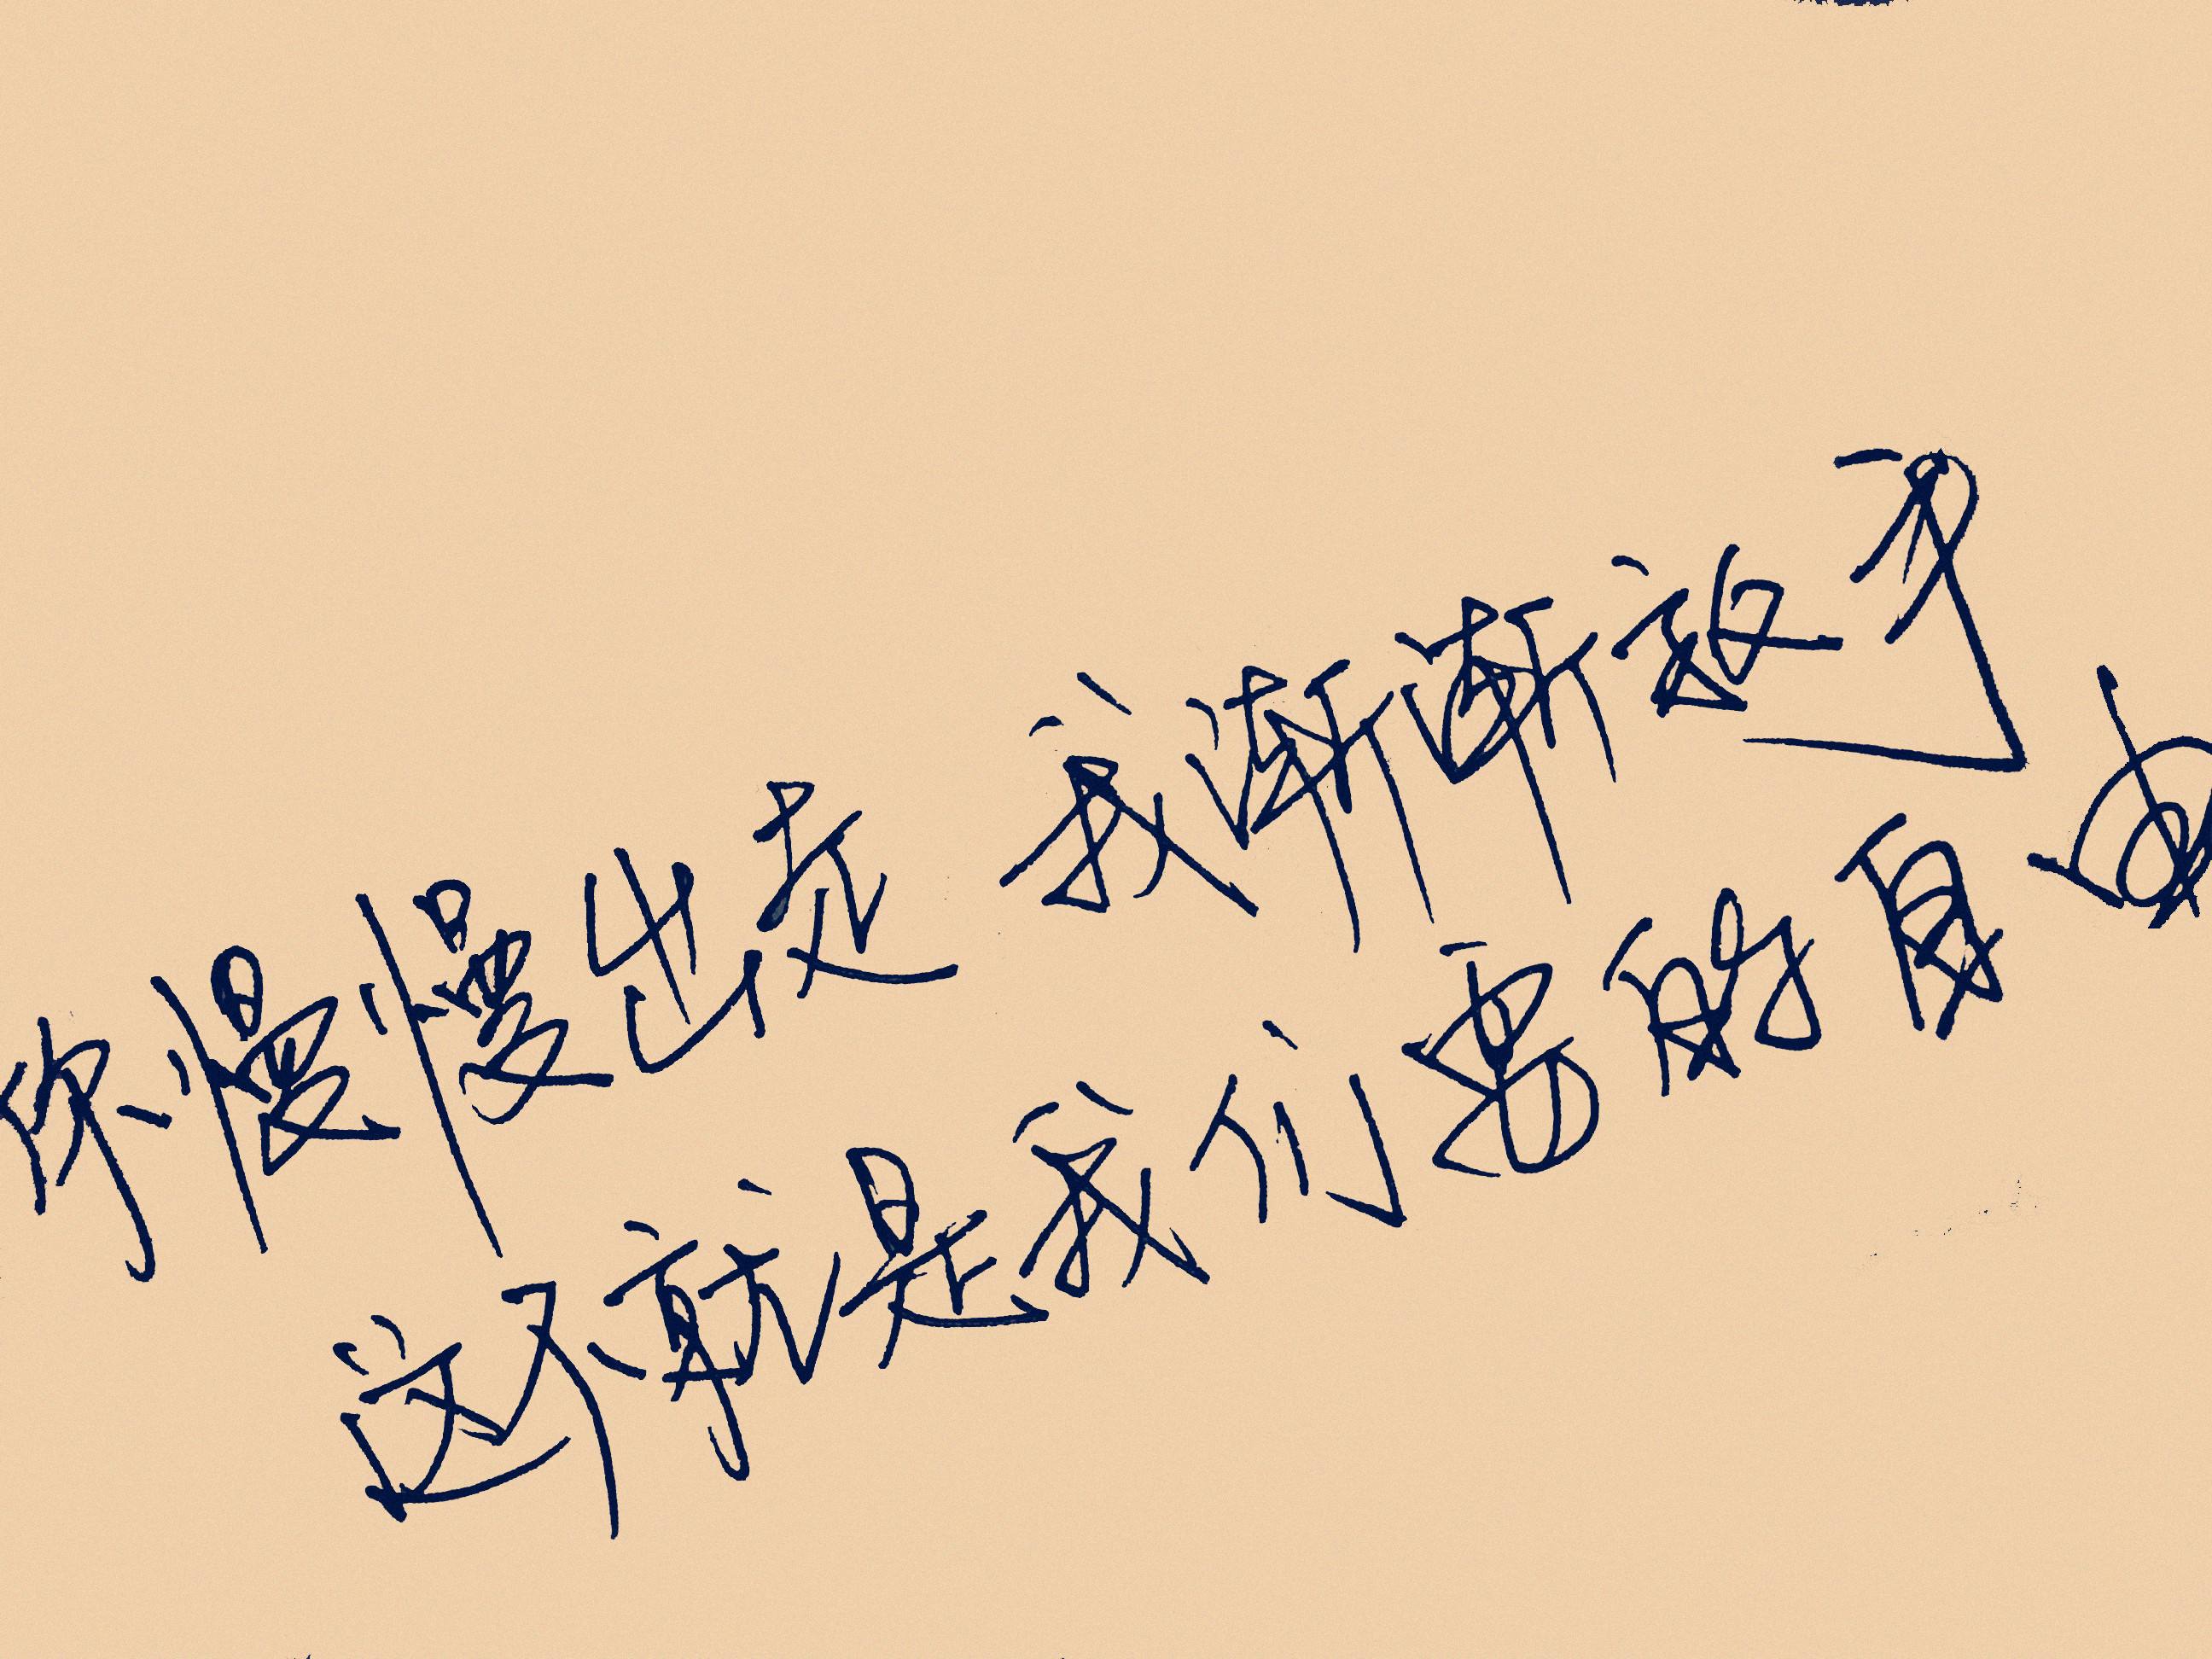 你慢慢出走 我渐渐放了
这不就是我们要的自由